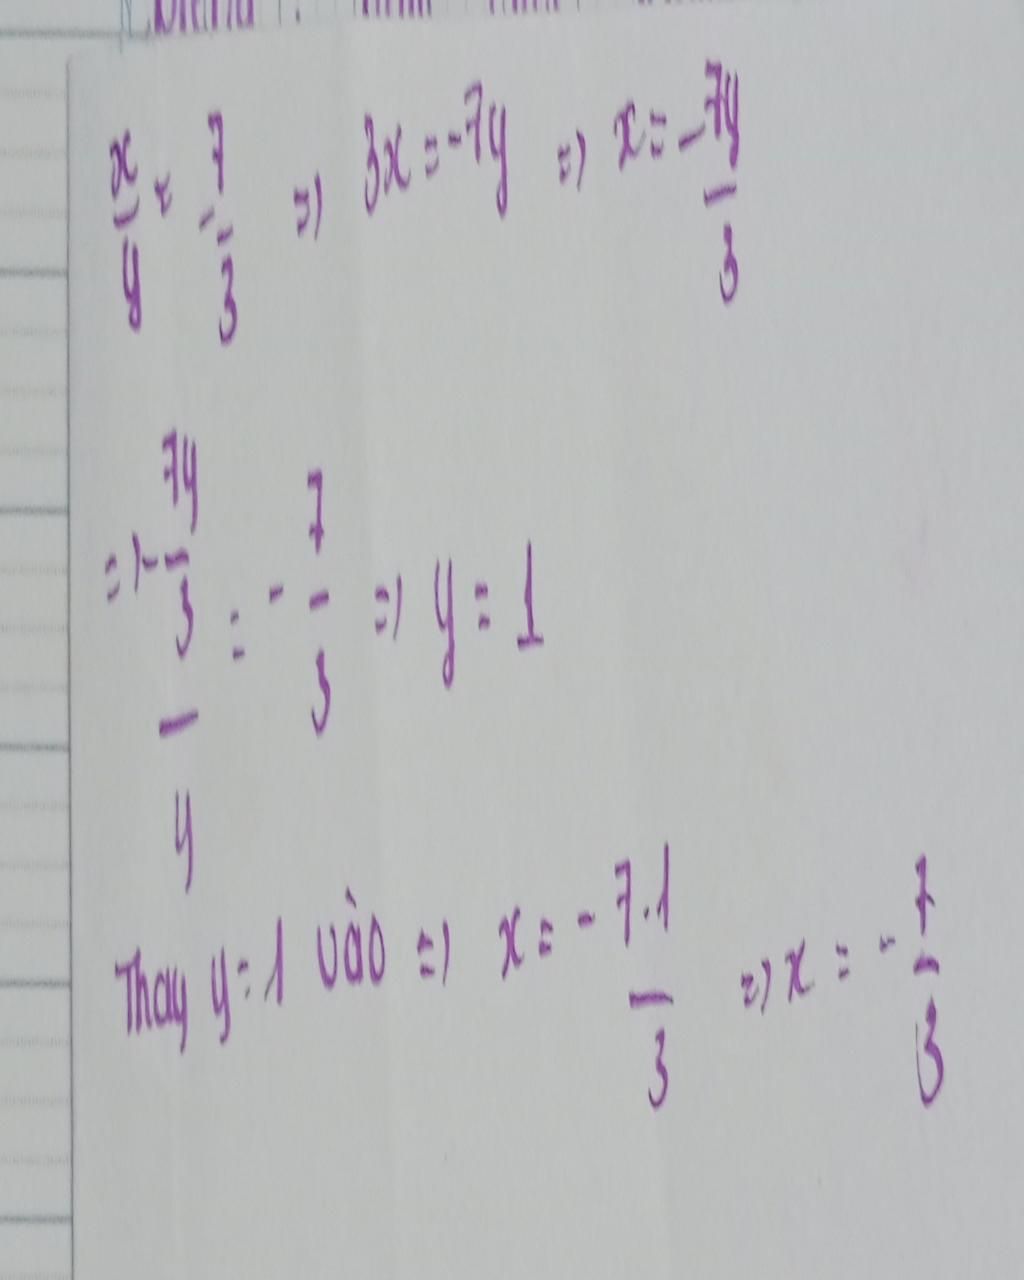 x/y = -7/3 => 3x = -7y => x = -7y/3
=> -7y/3/y = -7/3 => y = 1
Thay y = 1 vào => x = -7.1/3 => x = -7/3